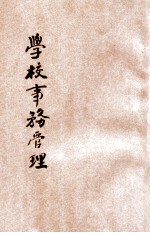 學校事務管理